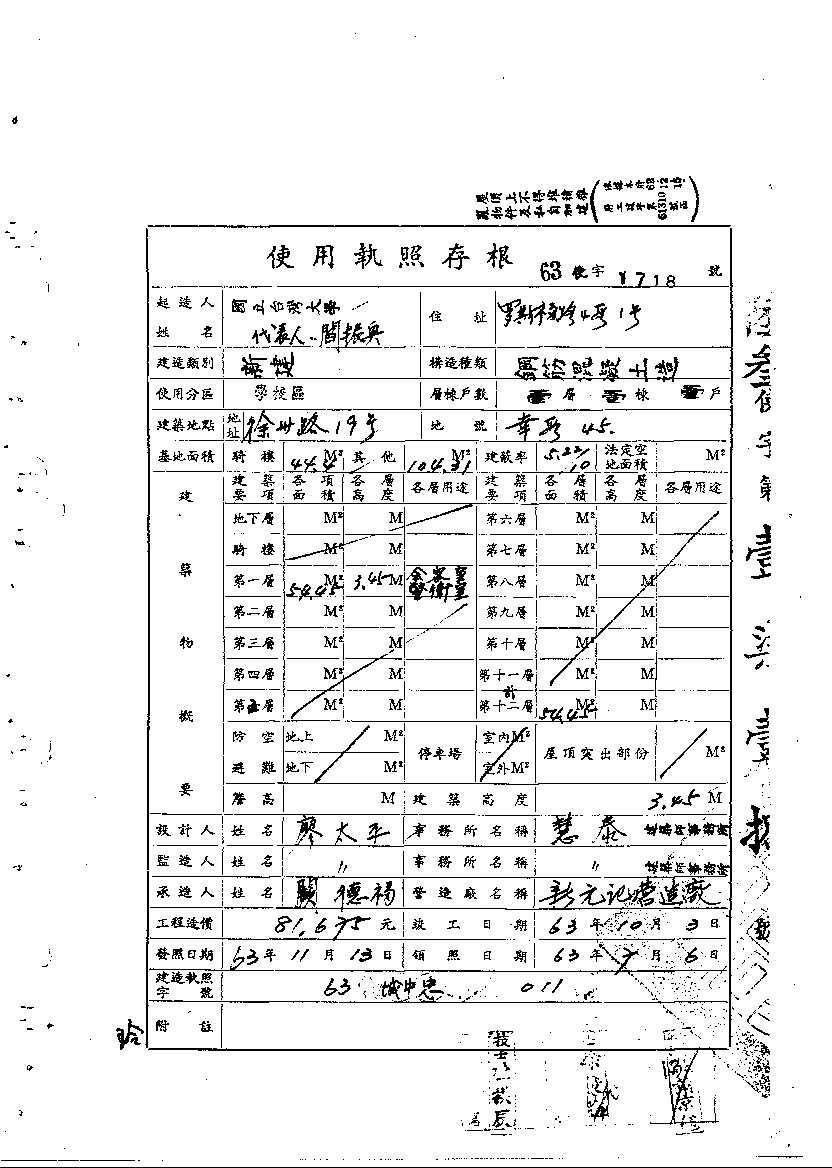 屋頂上不得堆積雜
亂物件及私自加建
使用執照存根 63 使字 1718 號
起造人姓名 國立台灣大學
代表人 閻振興
住址 羅斯福路4段1号
建造類別 新建 構造種類 鋼筋混凝土造
使用分區 學校區 層棟戶數 壹層 壹棟 壹戶
建築地點 地址 徐州路19号 地號 幸段 45.
基地面積 騎樓 44.4 M² 其他 104.31 M² 建蔽率 5.22/10 法定空地面積 M²
建築物概要
建築要項 各項面積 各層高度 各層用途 建築要項 各層面積 各層高度 各層用途
地下層 M² M 第六層 M² M
騎樓 M² M 第七層 M² M
第一層 54.45 M² 3.45 M 會客室 警衛室 第八層 M² M
第二層 M² M 第九層 M² M
第三層 M² M 第十層 M² M
第四層 M² M 第十一層 M² M
第五層 M² M 第十二層 計 54.45 M² M
防空避難 地上 M² 停車場 室內 M² 屋頂突出部份 M²
地下 M² 室外 M²
簷高 M 建築高度 3.45 M
設計人 姓名 廖太平 事務所名稱 慧泰 建築師事務所
監造人 姓名 〃 事務所名稱 〃 建築師事務所
承造人 姓名 關德福 營造廠名稱 新元记營造廠
工程造價 81,675 元 竣工日期 63年10月3日
發照日期 63年11月13日 領照日期 63年 月6日
建造執照字號 63 城中忠 011
附註